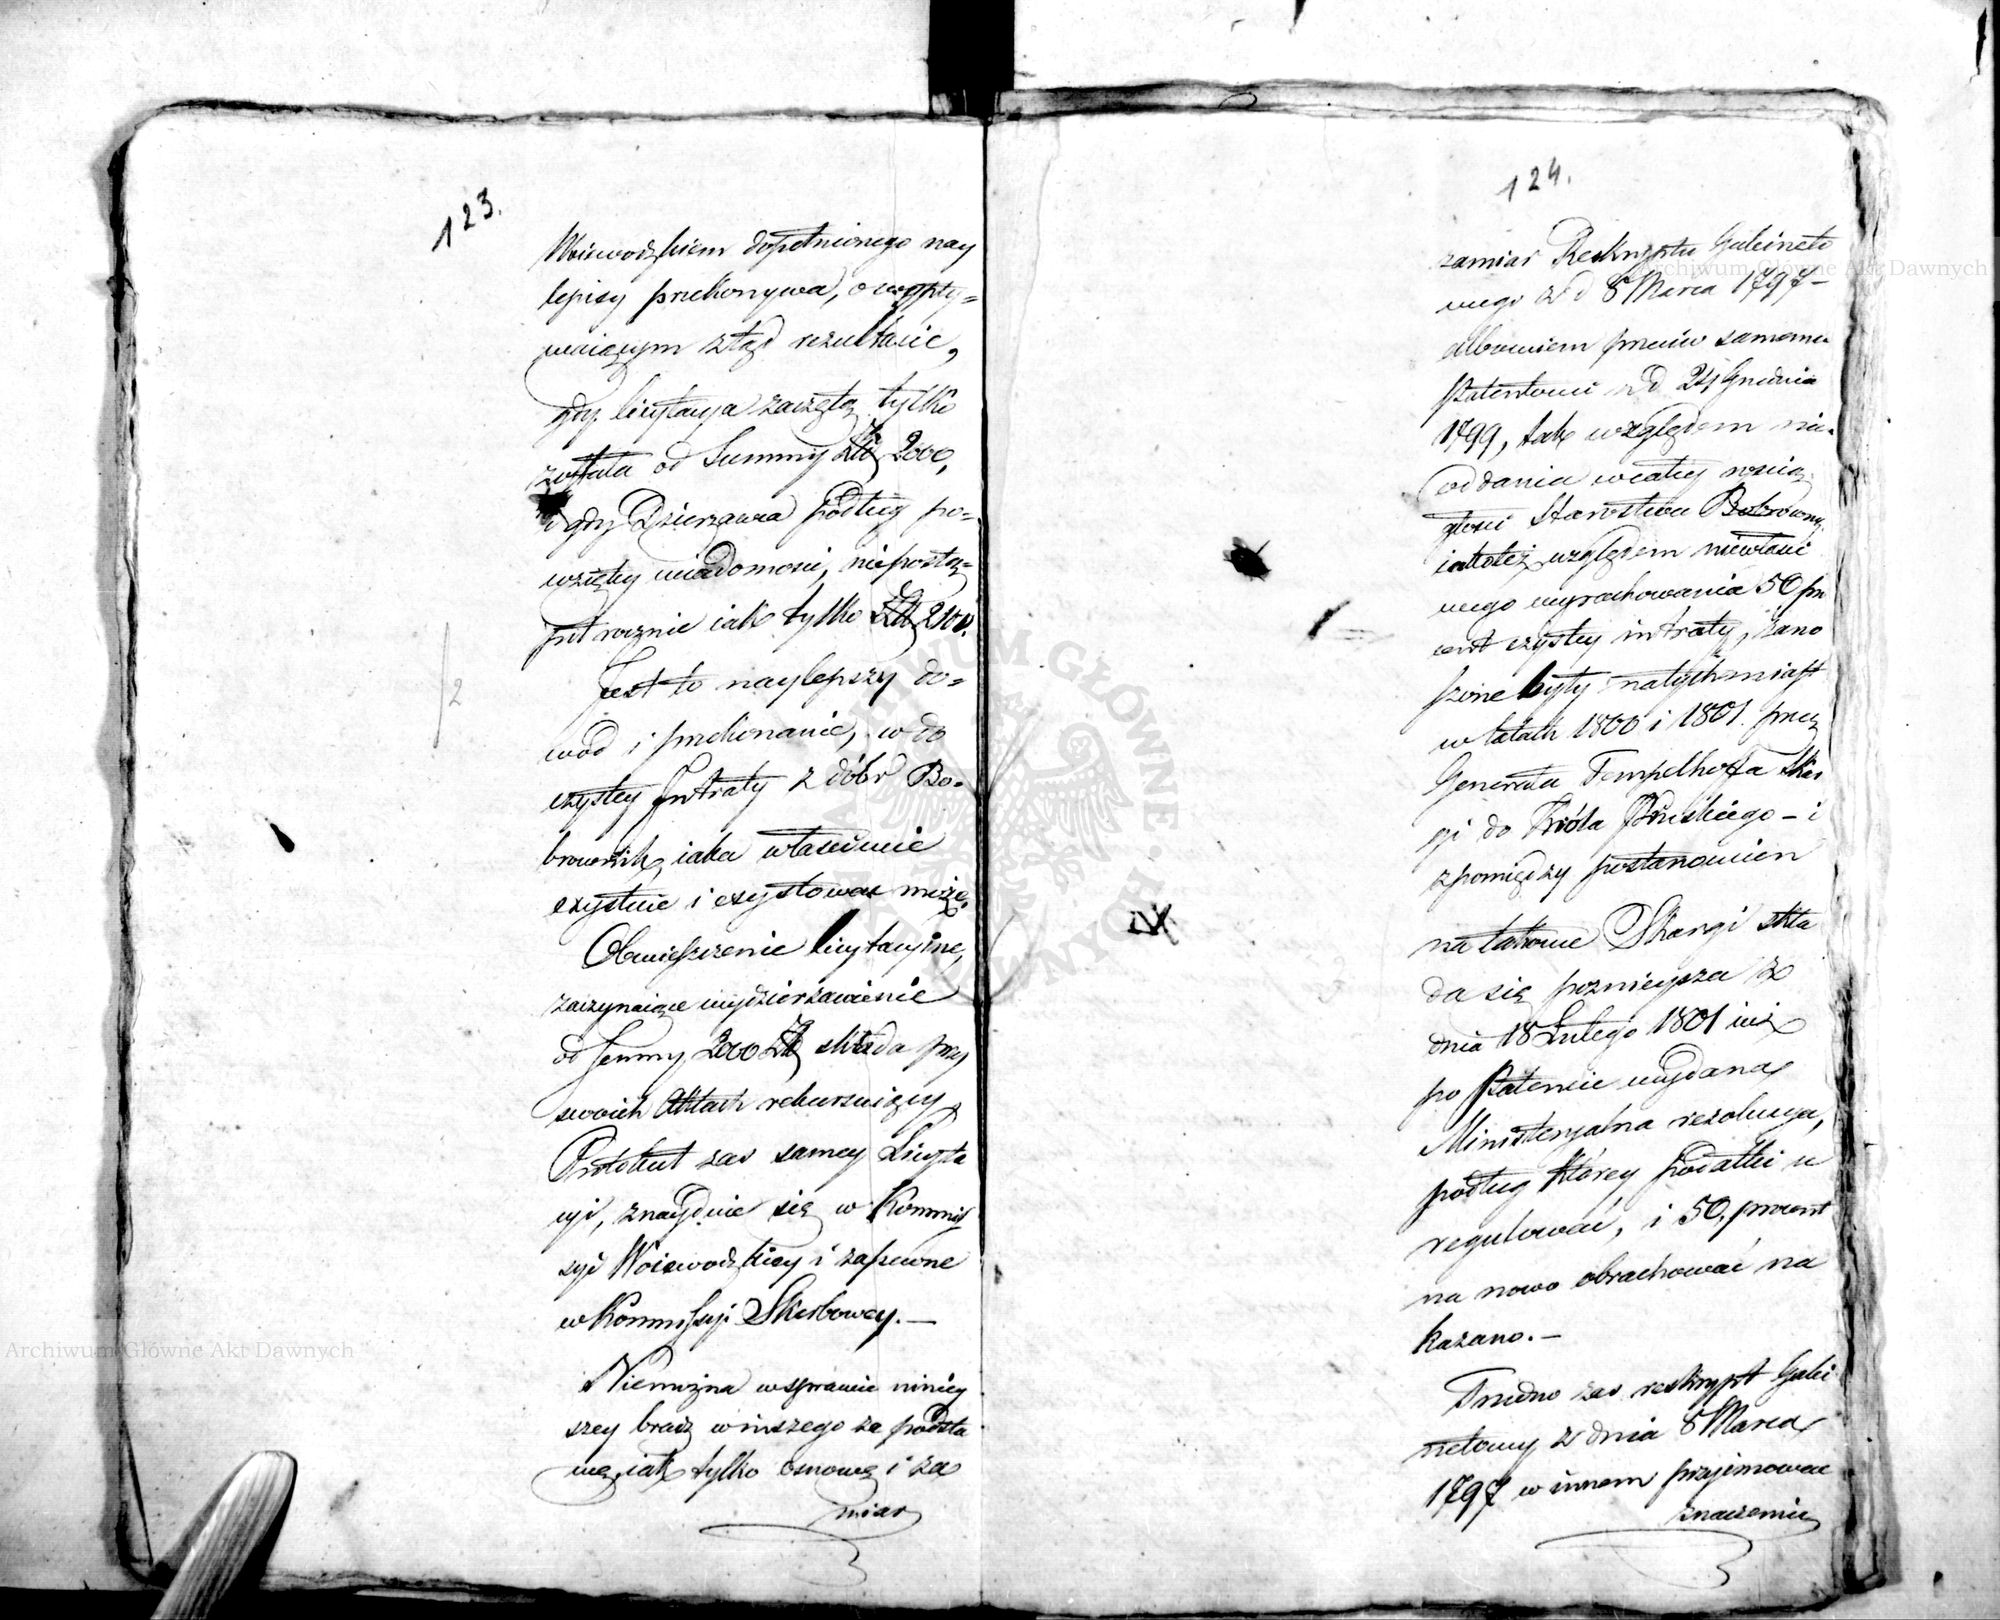 123.
Woiewodzkiem dopełnionego nay
lepiey przekonywa, o wypły=
waiącym ztąd rezultacie,
gdy licytacya zaczętą tylko
została od Summy Złł 2000,
i gdy Dzierzawca podług po=
wziętey wiadomosci, niepostą=
pił rocznie iak tylko Złł 2100.
Jest to naylepszy do=
wod i przekonanie, w do
czystey Intraty z dóbr Bo=
brownik, iaka własciwie
exystuie i exystowac może.
Obwieszczenie licytacyine,
zaczynaiące wydzierzawienie
od Summy 2000 Złł składa przy
swoich Aktach rekursuiący
Protokuł zas samey Licyta
cyi, znayduie się w Kommis
syi Woiewodzkiey i zapewne
w Kommissyi Skarbowey. —
Niemożna w sprawie niniey
szey brać co inszego za podsta
wę, iak tylko osnowę i za
miar
2
124.
zamiar Reskryptu Gabineto
wego z d 8 Marca 1797 —
albowiem przeciw samemu
Patentowi z d 24 Grudnia
1799, tak względem nie=
oddania w całey rozcią=
głosci Starostwa Bobrowny.
iakoteż względem niewłasci
wego wyrachowania 50 pro
cent czystey intraty, zano
szone były natychmiast
w latach 1800 i 1801. przez
Generała Tempelhoffa Skar
gi do Króla Pruskiego — i
zpomiędzy postanowien
na takowe Skargi skła
da się poznieysza z
dnia 18 Lutego 1801 iuż
po Patencie wydana
Ministeryalna rezolucya,
podług którey podatki u
regulować, i 50. procent
na nowo obrachować na
kazano. —
Trudno zas reskrypt Gabi
netowy z dnia 8 Marca
1797 w innem przyimować
znaczeniu
Archiwum Główne Akt Dawnych
Archiwum Główne Akt Dawnych
ARCHIWUM GŁÓWNE AKT DAWNYCH